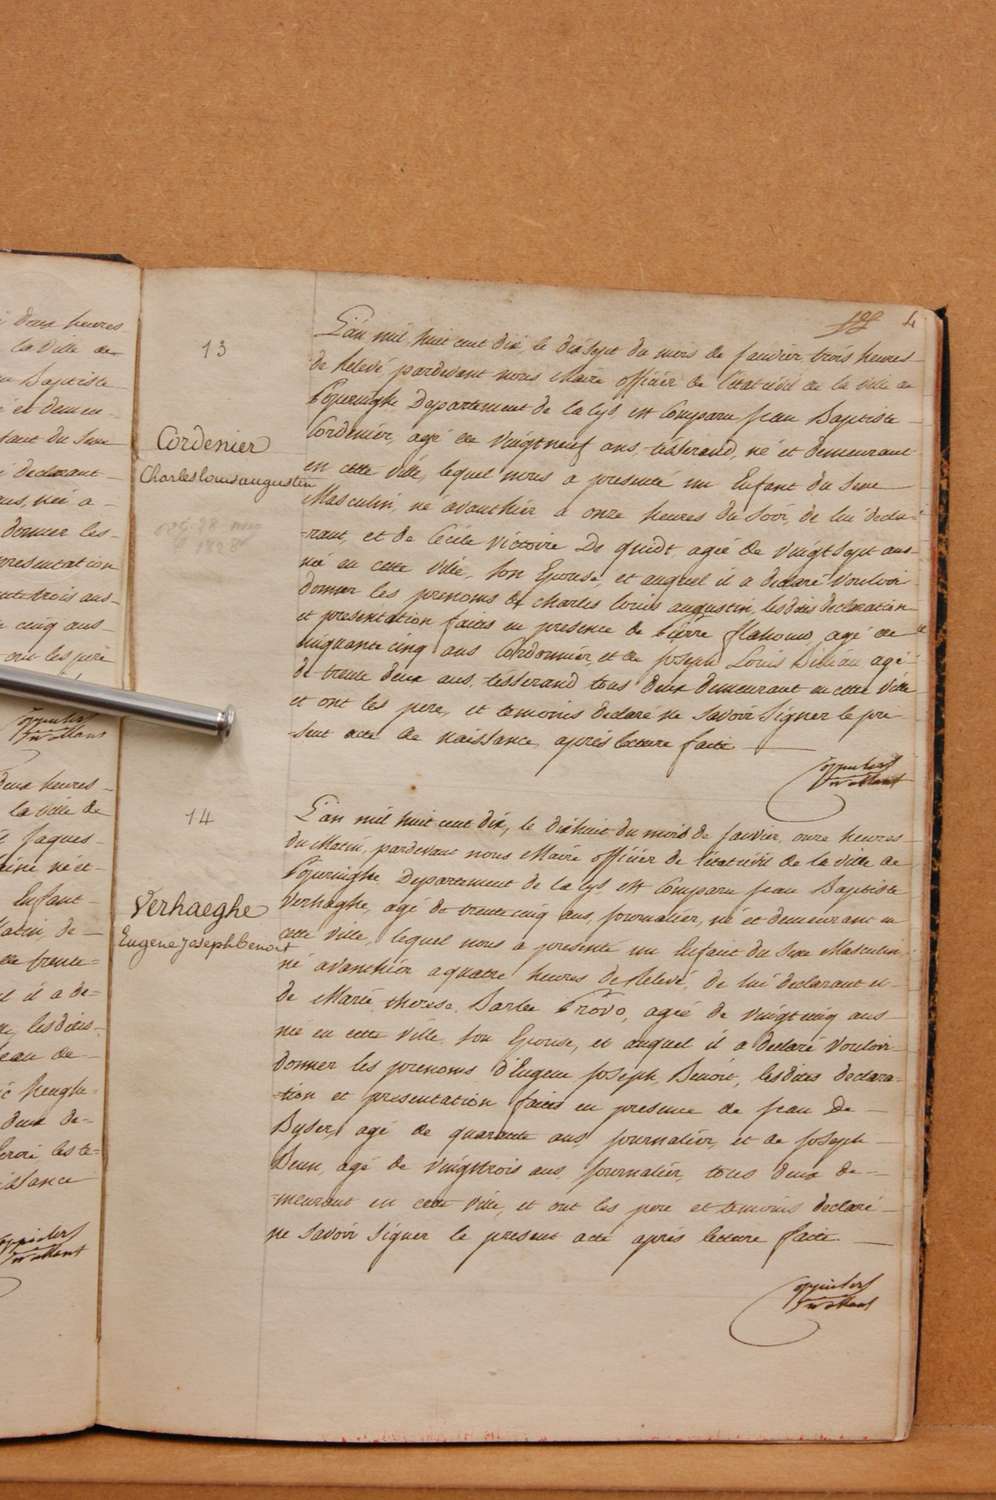 i deux heures
la ville de
Baptiste
et demeu-
sant du Sexe
declarant
donner les-
presentation
trois ans-
cinq ans-
ont les père
deux heures-
la ville de
Jaques-
né et-
Enfant-
de-
trente-
il a de-
deux de-
les te-
4
13
Cordenier
Charles louis augustin
28
1828
L'an mil huit cent dix, le dix Sept du mois de Janvier trois heures
de Relevé pardevant nous Maire officier de l'état civil de la ville de
Poperinghe Departement de la Lys est Comparu Jean Baptiste
Cordenier, agé de vingt neuf ans, tisserand, né et demeurant
en cette ville, lequel nous a presenté un Enfant du Sexe
Masculin, né avanthier a onze heures du Soir, de lui decla-
-rant, et de Cécile Victoire De quidt agée de vingt Sept ans-
née en cette ville, Son Epouse, et auquel il a declaré vouloir
donner les prenoms de charles louis augustin, lesdites declaration
et presentation faites en presence de Pierre Flahouw agé de
cinquante cinq ans Cordonnier, et de Joseph Louis agé
de trente deux ans, tisserand tous deux demeurant en cette ville
et ont les pere, et temoins declaré ne Savoir Signer le pre
-sent acte de naissance, après lecture faite
14
Verhaeghe
Eugène Joseph benoit
L'an mil huit cent dix, le dix huit du mois de Janvier, onze heures
du Matin, pardevant nous Maire officier de l'état civil de la ville de
Poperinghe Departement de la Lys est Comparu Jean Baptiste
Verhaeghe, agé de trente cinq ans, journalier, né et demeurant en
cette ville, lequel nous a presenté un Enfant du Sexe Masculin,
né avanthier a quatre heures de Relevé, de lui declarant et-
de Marie therese Barbe Provo, agée de vingt cinq ans-
née en cette ville, Son Epouse, et auquel il a declaré Vouloir
donner les prenoms d'Eugene Joseph Benoit, lesdites declara-
-tion et presentation faites en presence de Jean De-
Byser, agé de quarante ans, journalier, et de Joseph
Beun, agé de vingt trois ans, journalier, tous deux de-
-meurant en cette ville, et ont les pere et temoins declaré
ne Savoir Signer le present acte après lecture faite